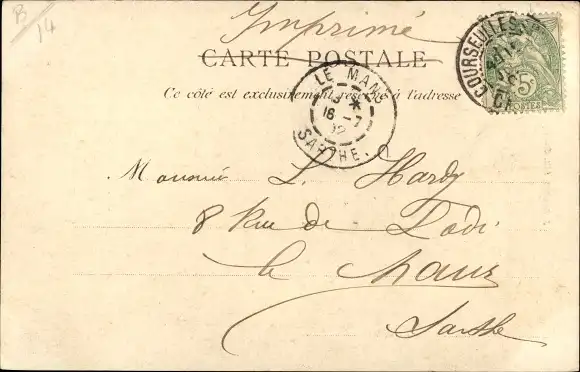 B
14
Imprimé
CARTE POSTALE
Ce côté est exclusivement réservé à l'adresse
COURSEULLES
5
POSTES
LE MANS
16
SARTHE.
L. Hardy
8 Rue de
le Mans
Sarthe